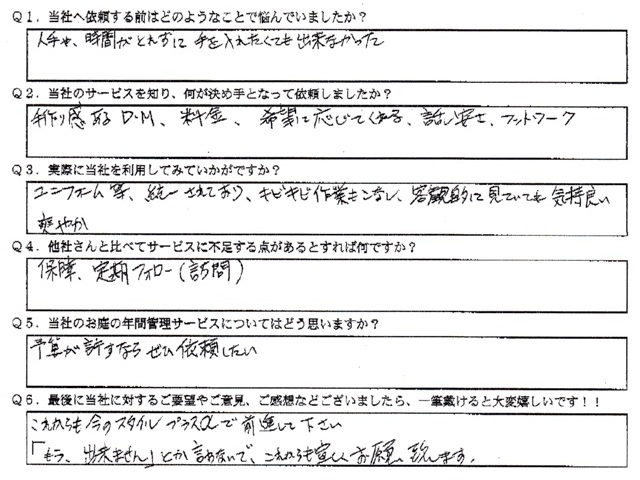 Q1．当社へ依頼する前はどのようなことで悩んでいましたか？
人手や、時間がとれずに手を入れたくても出来なかった
Q2．当社のサービスを知り、何が決め手となって依頼しましたか？
手作り感あるD.M、料金、希望に応じてくれる、話し安さ、フットワーク
Q3．実際に当社を利用してみていかがですか？
ユニフォーム等、統一されており、キビキビ作業をこなし、客観的に見ていても気持良い
爽やか
Q4．他社さんと比べてサービスに不足する点があるとすれば何ですか？
保障、定期フォロー(訪問)
Q5．当社のお庭の年間管理サービスについてはどう思いますか？
予算が許すならぜひ依頼したい
Q6．最後に当社に対するご要望やご意見、ご感想などございましたら、一筆戴けると大変嬉しいです！！
これからも今のスタイルプラスαで前進して下さい
「もう、出来ません」とか言わないで、これからも宜しくお願い致します。